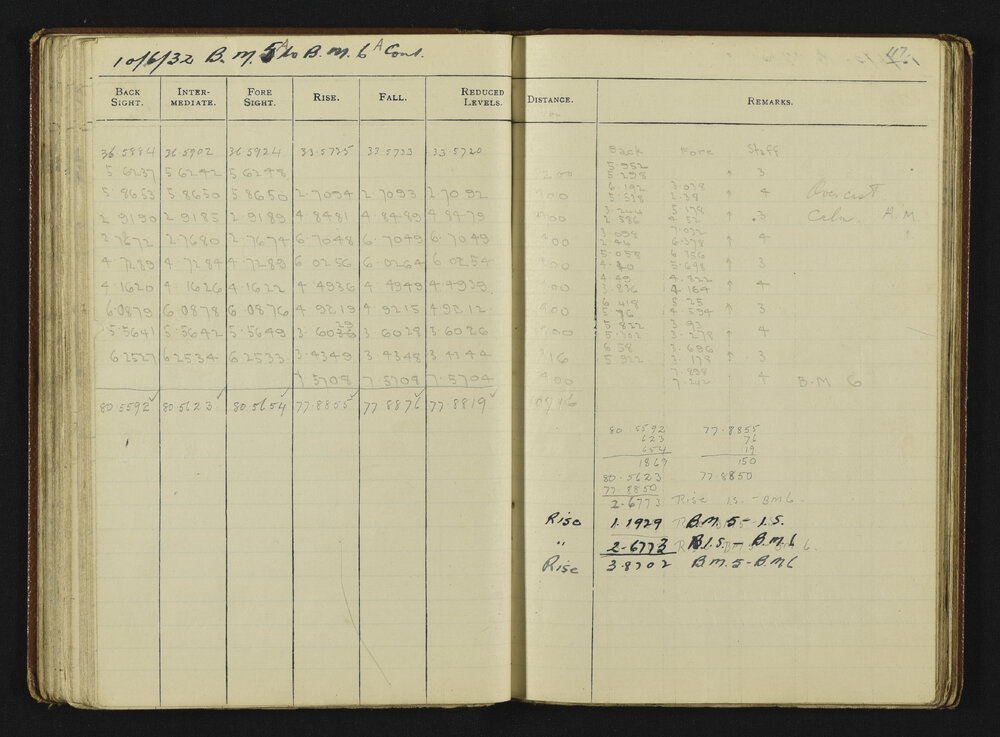 10/6/32 B.M. 5A to B.M. 6A Cont.
117.
BACK SIGHT. INTER-MEDIATE. FORE SIGHT. RISE. FALL. REDUCED LEVELS. DISTANCE. REMARKS.
36.5884 36.5902 36.5924 33.5735 33.5733 33.5720 Back Fore Staff
5.6237 5.6242 5.6248 5.952
200 5.298 ↑ 3
5.8653 5.8650 5.8650 2.7094 2.7093 2.7092 6.192 3.078
5.538 ↑ 4 Overcast
2.9190 2.9185 2.9189 4.8481 4.8489 4.8479 3.244 5.178
2.586 4.52 3 Calm A.M.
2.7672 2.7680 2.7674 6.7048 6.7049 6.7049 400 3.098 7.032
2.44 6.378 ↑ 4
4.7289 4.7284 4.7289 6.0256 6.0264 6.0254 5.058 6.356
5.698 ↑ 3
4.1620 4.1626 4.1622 4.4936 4.4949 4.4939 4.49 4.822
3.836 4.164 ↑ 4
6.0879 6.0878 6.0876 4.9219 4.9215 4.9212 6.418 5.25
4.594 ↑ 3
5.5641 5.5642 5.5649 3.6029 3.6028 3.6026 5.892 3.93
3.278 ↑ 4
6.2527 6.2534 6.2533 3.4349 3.4348 3.4344 316 6.58 3.696
5.922 3.178 ↑ 3
7.5708 7.5709 7.5704 400 7.898
7.242 4 B.M 6
80.5592 ✓ 80.5623 ✓ 80.5654 ✓ 77.8855 ✓ 77.8876 ✓ 77.8819 ✓
80.5592 77.8855
623 76
654 19
1869 150
80.5623 77.8850
77.8850
2.6773 Rise I.S. - B.M 6.
Rise 1.1929 B.M. 5 - I.S.
" 2.6773 I.S. - B.M. 6
Rise 3.8702 B.M. 5 - B.M 6